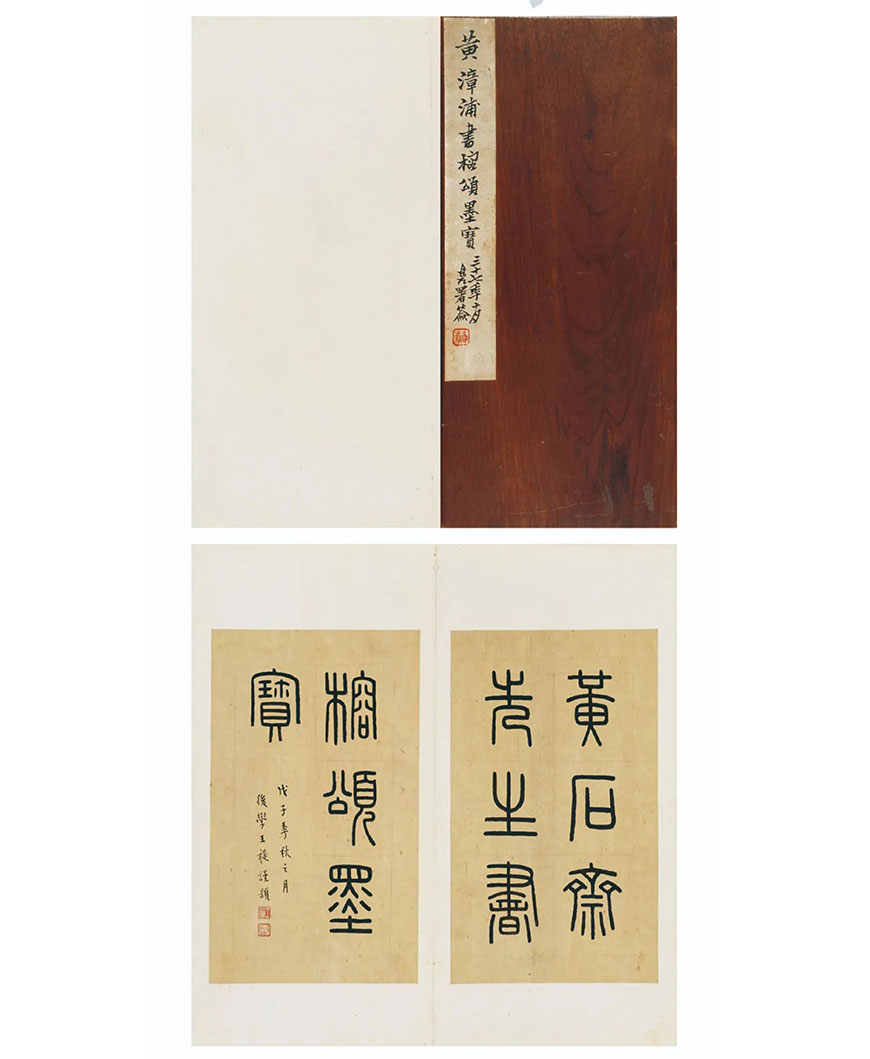 黃漳浦書榕頌墨寶
三十七年十月
署簽
黃石齋
先生書
榕頌墨
寶
戊子季秋之月
後學王禔謹題